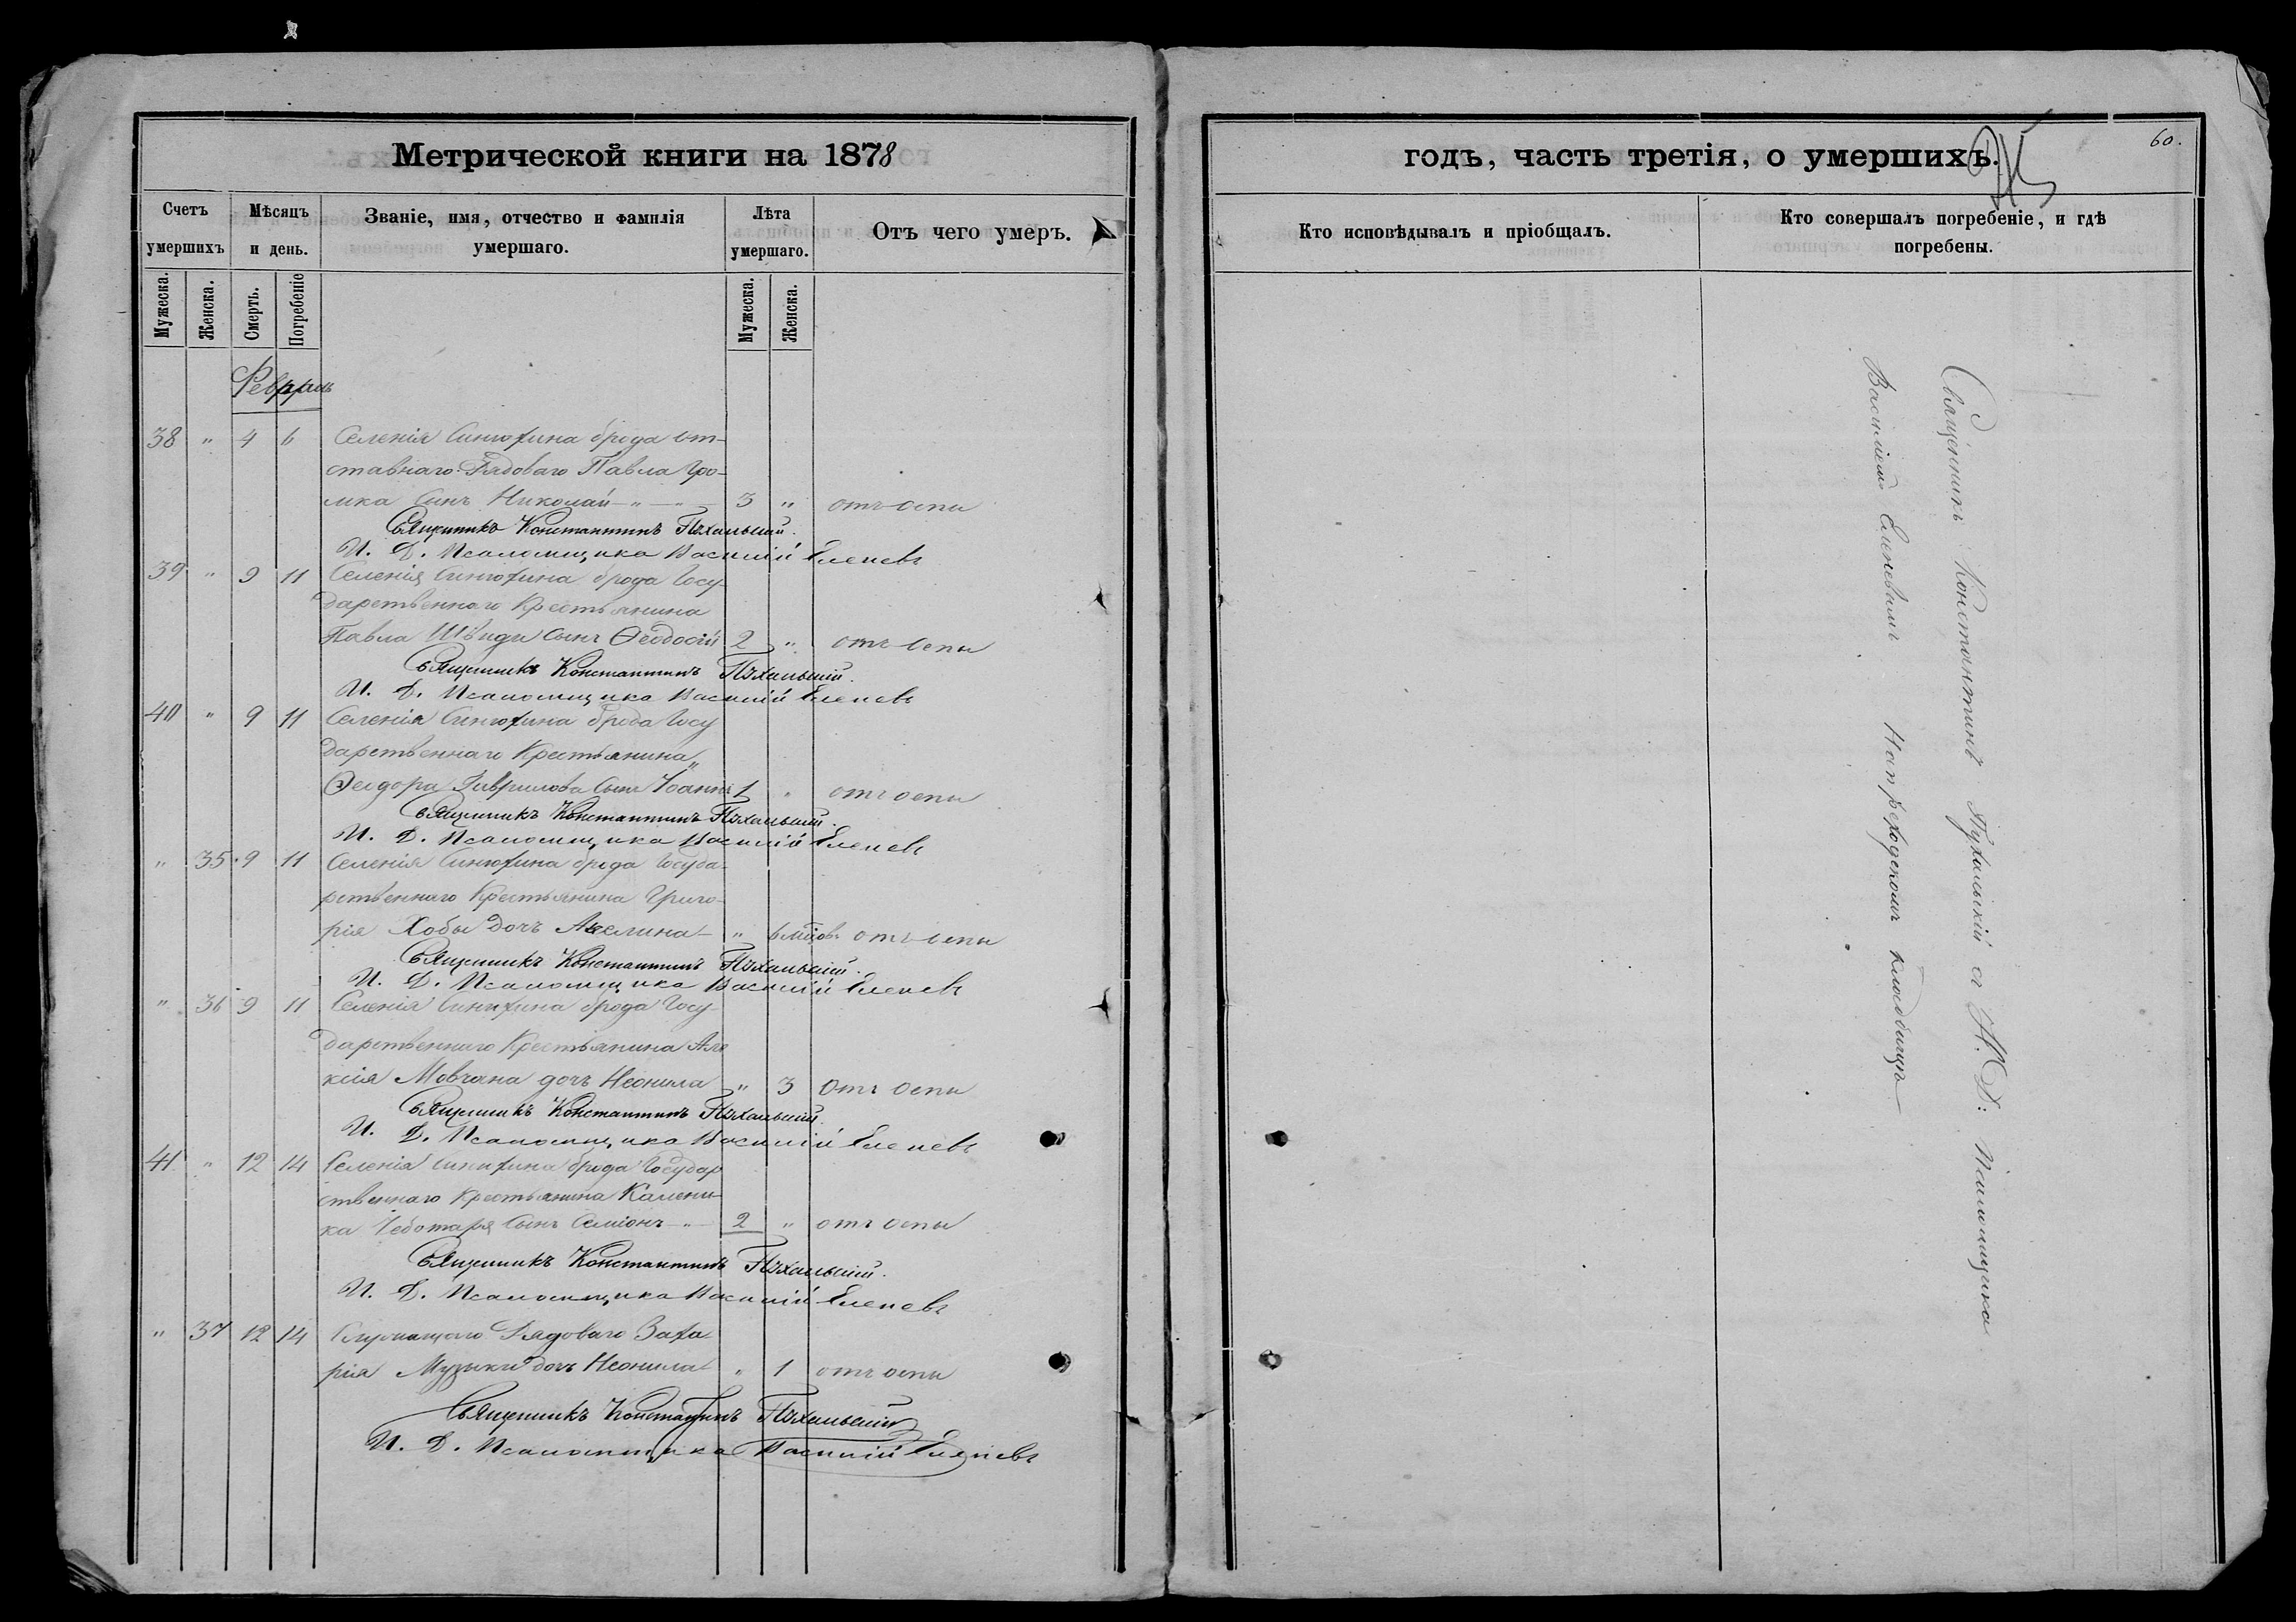 Метрической книги на 1878
Счетъ умершихъ
Мѣсяцъ и день.
Званіе, имя, отчество и фамилія умершаго.
Лѣта умершаго.
Отъ чего умеръ.
Мужеска. Женска. Смерть. Погребеніе Мужеска. Женска.
Февраль
38 " 4 6 Селенія Синюхина брода от-
ставнаго Рядоваго Павла Гро-
мка Сынъ Николай 3 " отъ оспы
Священникъ Константинъ
И. Д. Псаломщика Василій Еленевъ
39 " 9 11 Селенія Синюхина брода Госу-
дарственнаго Крестьянина
Павла Швиди Сынъ Ѳеодосій 2 " отъ оспы
Священникъ Константинъ
И. Д. Псаломщика Василій Еленевъ
40 " 9 11 Селенія Синюхина брода Госу
дарственнаго Крестьянина
Ѳеодора Гаврилова Сынъ Іоаннъ 1 " отъ оспы
Священникъ Константинъ
И. Д. Псаломщика Василій Еленевъ
" 35 9 11 Селенія Синюхина брода Госуда-
рственнаго Крестьянина Григо-
рія Хобы дочь Акилина " 6 мѣсяцовъ отъ оспы
Священникъ Константинъ
И. Д. Псаломщика Василій Еленевъ
" 36 9 11 Селенія Синюхина брода Госу-
дарственнаго Крестьянина Але
ксія Мовчана дочь Неонила " 3 отъ оспы
Священникъ Константинъ
И. Д. Псаломщика Василій Еленевъ
41 " 12 14 Селенія Синюхина брода Государ
ственнаго Крестьянина Калени-
ка Чеботаря Сынъ Семіонъ 2 " отъ оспы
Священникъ Константинъ
И. Д. Псаломщика Василій Еленевъ
" 37 12 14 Служащаго Рядоваго Заха
рія Музыки дочь Неонила " 1 отъ оспы
Священникъ Константинъ
И. Д. Псаломщика Василій Еленевъ
60.
годъ, часть третія, о умершихъ.
Кто исповѣдывалъ и пріобщалъ.
Кто совершалъ погребеніе, и гдѣ погребены.
Священникъ Константинъ съ И. Д: Псаломщика
Василіемъ Еленевымъ На приходскомъ кладбищѣ